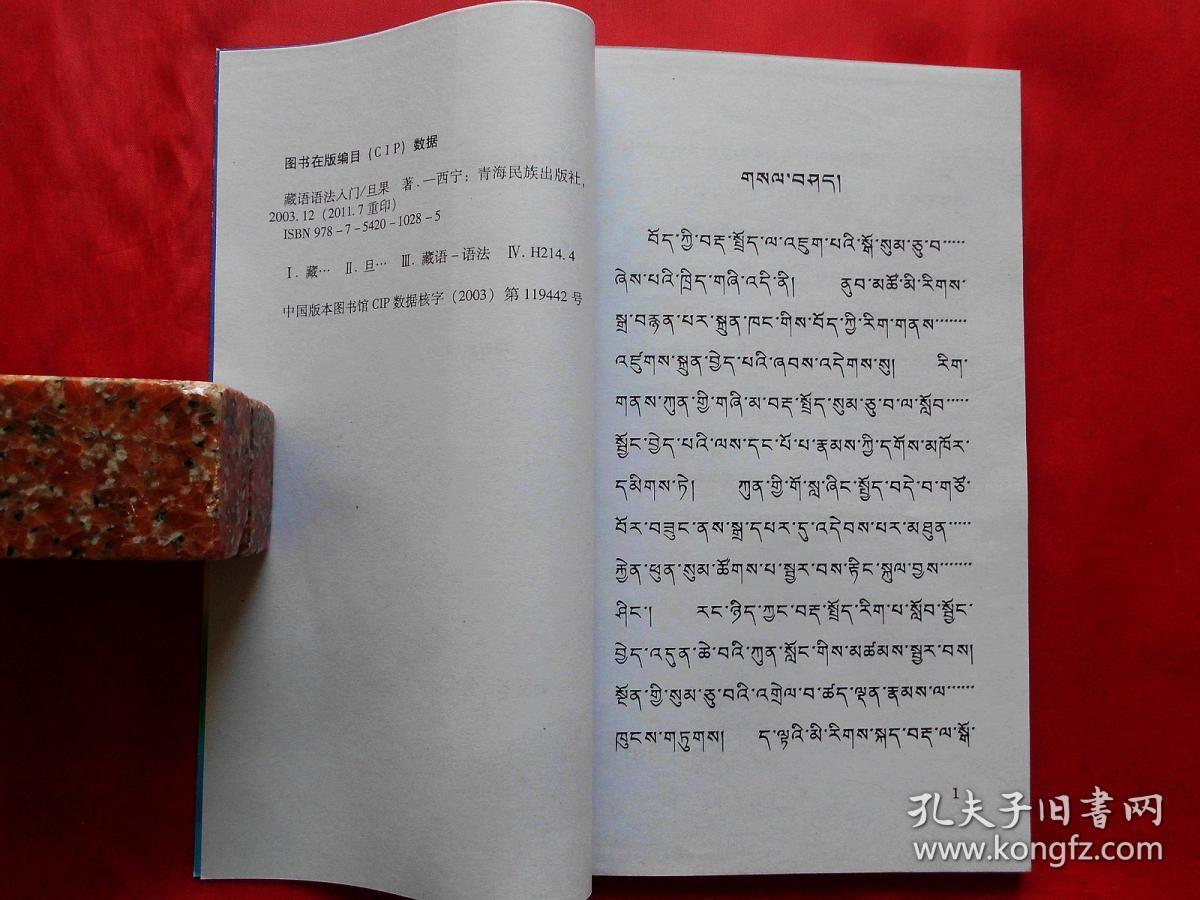 图书在版编目(CIP)数据
藏语语法入门/旦果 著.—西宁:青海民族出版社,
2003.12(2011.7重印)
ISBN 978-7-5420-1028-5
Ⅰ.藏… Ⅱ.旦… Ⅲ.藏语-语法 Ⅳ.H214.4
中国版本图书馆CIP数据核字(2003)第119442号
གསལ་བཤད།
བོད་ཀྱི་བརྡ་སྤྲོད་ལ་འཇུག་པའི་སྒོ་སུམ་ཅུ་བ་་་་་
ཞེས་པའི་ཁྲིད་གཞི་འདི་ནི། ནུབ་མཚོ་མི་རིགས་
སྒྲ་བརྙན་པར་སྐྲུན་ཁང་གིས་བོད་ཀྱི་རིག་གནས་་་་་་་
འཛུགས་སྐྲུན་བྱེད་པའི་ཞབས་འདེགས་སུ། རིག་
གནས་ཀུན་གྱི་གཞི་མ་བརྡ་སྤྲོད་སུམ་ཅུ་བ་ལ་སློབ་་་་་
སྦྱོང་བྱེད་པའི་ལས་དང་པོ་པ་རྣམས་ཀྱི་དགོས་མཁོར་
དམིགས་ཏེ། ཀུན་གྱི་གོ་སླ་ཞིང་སྤྱོད་བདེ་བ་གཙོ་
བོར་བཟུང་ནས་སྒྲ་དཔར་དུ་འདེབས་པར་མཐུན་་་་་
རྐྱེན་ཕུན་སུམ་ཚོགས་པ་སྦྱར་བས་རྟིང་སྐུལ་བྱས་་་་་་་
ཤིང་། རང་ཉིད་ཀྱང་བརྡ་སྤྲོད་རིག་པ་སློབ་སྦྱོང་
བྱེད་འདུན་ཆེ་བའི་ཀུན་སློང་གིས་མཚམས་སྦྱར་བས།
སྔོན་གྱི་སུམ་ཅུ་བའི་འགྲེལ་བ་ཚད་ལྡན་རྣམས་ལ་་་་་་
ཁུངས་གཏུགས། ད་ལྟའི་མི་རིགས་སྐད་བརྡ་ལ་སྒོ་
1
孔夫子旧书网
www.kongfz.com